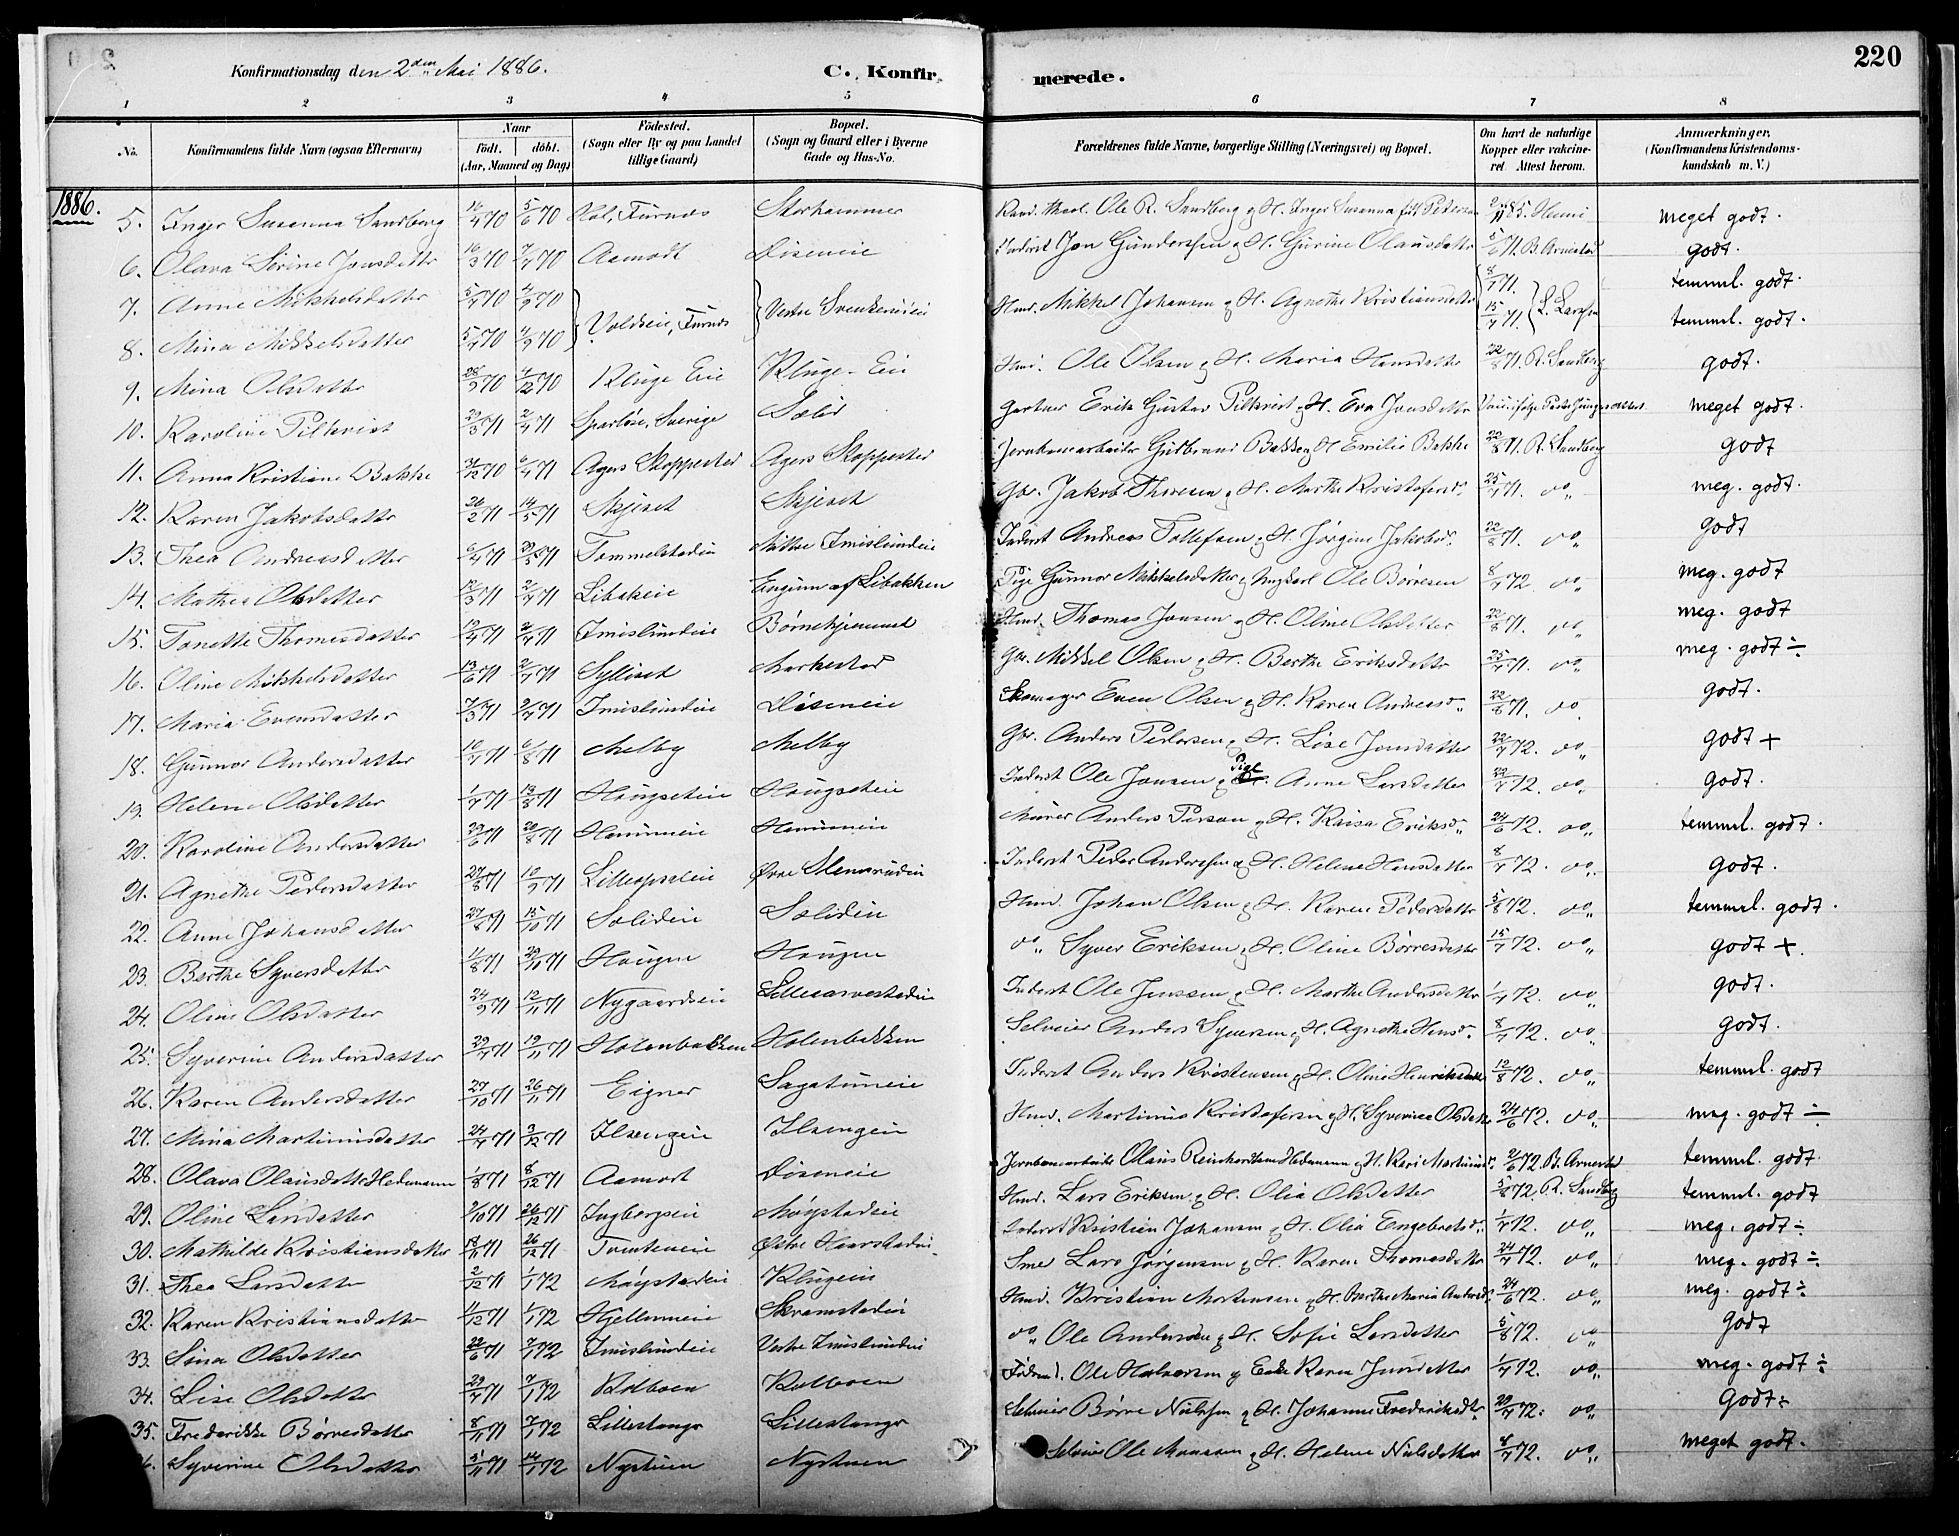 220
Konfirmationsdag den 2den Mai 1886. C. Konfirmerede.
1 2 3 4 5 6 7 8
No. Konfirmandens fulde Navn (ogsaa Efternavn) Naar født. døbt. (Aar, Maaned og Dag) Fødested. (Sogn eller By og paa Landet tillige Gaard) Bopæl. (Sogn og Gaard eller i Byerne Gade og Hus-No. Forældrenes fulde Navne, borgerlige Stilling (Næringsvei) og Bopæl. Om havt de naturlige Kopper eller vakcineret Attest herom. Anmærkninger. (Konfirmandens Kristendomskundskab m. V.)
1886.
5. Inger Susanna Sandberg 16/4 70 5/6 70 Furnes Storhammer Kand. theol. Ole R. Sandberg og H. Inger Susanna meget godt.
6. Olava Serine Jonsdatter 16/3 70 7/4 70 Aamodt Diseneie Inderst Jon Gundersen og H. Gurine Olausdatter 5/6 71. B. Arnestad godt.
7. Anne Mikkelsdatter 5/4 70 4/9 70 Voldseie, Furnes Vestre Svenkerudeie Hmd. Mikkel Johansen og H. Agnethe Kristiansdatter 8/7 71. L. Larsen temml. godt.
8. Mina Mikkelsdatter 5/4 70 4/9 70 15/7 71. temml. godt.
9. Mina Olsdatter 28/9 70 4/12 70 Kluge Eie Kluge-Eie Hmd. Ole Olsen og H. Maria Hansdatter 22/8 71. R. Sandberg godt.
10. Karoline Pilkvist 29/3 71 2/4 71 Sparløse, Sverige Sælid Gartner Erik Gustav Pilkvist og H. Eva Jonsdatter meget godt.
11. Anna Kristiane Bakke 31/12 70 6/4 71 Agers Skoppestad Agers Skoppestad Jernbanearbeider Gulbrand Bakke og H. Emilie Bakke 22/8 71. R. Sandberg godt
12. Karen Jakobsdatter 26/2 71 14/5 71 Skjeset Skjeset Gbr. Jakob Thoresen og H. Marthe Kristofersd. 25/7 71. do meg. godt.
13. Thea Andreasdatter 6/4 71 29/5 71 Tommelstadeie Midtre Imislundeie Inderst Andreas Tollefsen og H. Jørgine Jakobsd. 22/8 71. do godt
14. Mathea Olsdatter 12/3 71 2/7 71 Libakeie Engum af Libakken Pige Gunnor Mikkelsdatter og Ungkarl Ole Børresen 8/7 72. do meg. godt
15. Tonette Thomasdatter 19/4 71 2/7 71 Imislundeie Børnehjemmet Hmd. Thomas Jonsen og H. Oline Olsdatter 22/8 71. do meg. godt
16. Oline Mikkelsdatter 13/6 71 2/7 71 Sylliset Markestad Gbr. Mikkel Olsen og H. Berthe Eriksdatter 25/7 71. do meg. godt ÷
17. Maria Evensdatter 7/3 71 2/7 71 Imislundeie Diseneie Skomager Even Olsen og H. Karen Andreasd. 22/8 71. do godt.
18. Gunnor Andersdatter 10/7 71 6/8 71 Melby Melby Gbr. Anders Pedersen og H. Lise Jonsdatter 22/7 72. do godt +
19. Helene Olsdatter 1/7 71 13/8 71 Haugseteie Haugseteie Inderst Ole Jonsen og Pige Anne Larsdatter 22/7 72. do godt.
20. Karoline Andersdatter 29/6 71 20/8 71 Horumeie Horumeie Murer Anders Person og H. Kaisa Eriksd. 24/6 72. do temml. godt.
21. Agnethe Pedersdatter 27/8 71 10/9 71 Lilleopsaleie Øvre Stensrudeie Inderst Peder Andersen og H. Helene Hansdatter 8/7 72. do godt.
22. Anne Johansdatter 27/8 71 15/10 71 Sælideie Sælideie Hmd. Johan Olsen og H. Karen Pedersdatter 5/8 72. do temml. godt.
23. Berthe Syversdatter 11/8 71 29/10 71 Haugen Haugen do Syver Eriksen og H. Oline Børresdatter 15/7 72. do godt +.
24. Oline Olsdatter 24/9 71 12/11 71 Nygaardseie Inderst Ole Jenssen og H. Marthe Andersdatter 1/7 72. do godt.
25. Syverine Andersdatter 29/7 71 19/11 71 Holenbakken Holenbakken Selveier Anders Syversen og H. Agnethe Hansd. 8/7 72. do godt.
26. Karen Andersdatter 27/10 71 26/11 71 Eigner Sagatuneie Inderst Anders Kristensen og H. Oline Henriksdatter 12/8 72. do temml. godt
27. Mina Martinusdatter 24/7 71 3/12 71 Ilsengeie Ilsengeie Hmd. Martinus Kristofersen og H. Syverine Olsdatter 24/6 72. do meg. godt ÷
28. Olava Olausdatter Hedemann 1/8 71 8/12 71 Aamodt Diseneie Jernbanearbeide Olaus Reinhardtsen Hedemann og H. Kari Martinusd. 2/6 72. B. Arnestad temml. godt.
29. Oline Larsdatter 2/10 71 26/12 71 Ingbergseie Møystadeie Hmd. Lars Eriksen og H. Olia Olsdatter 5/8 72. R. Sandberg temml. godt
30. Mathilde Kristiansdatter 18/11 71 26/12 71 Tomteneie Østre Haarstadeie Inderst Kristian Johansen og H. Olia Engebretsd. 1/7 72. do meg. godt ÷
31. Thea Larsdatter 2/12 71 1/1 72 Møystadeie Klugeeie Sme Lars Jørgensen og H. Karen Thomasdatter 24/7 72. do meg. godt ÷
32. Karen Kristiansdatter 11/12 71 1/1 72 Hjellumeie Skramstadeie Hmd. Kristian Mortensen og H. Berthe Maria Andersd. 24/6 72. do meg. godt ÷
33. Sina Olsdatter 22/6 71 7/1 72 Imislundeie Vestre Imislundeie do Ole Andersen og H. Sofie Larsdatter 5/8 72. do Godt
34. Lise Olsdatter 29/7 71 7/1 72 Kolboen Kolboen Ole Halvorsen og Enke Karen Jensdatter 1/7 72. do meg. godt ÷
35. Frederikke Børresdatter 8/11 71 7/1 72 Lillestange Lillestange Selveier Børre Nielsen og H. Johanne Frederiksdtr. 29/7 72. do Godt ÷
6. Syverine Olsdatter 5/11 71 14/1 72 Nystuen Nystuen Selveier Ole Monssen og H. Helene Nielsdatter 8/7 72. do meget godt.